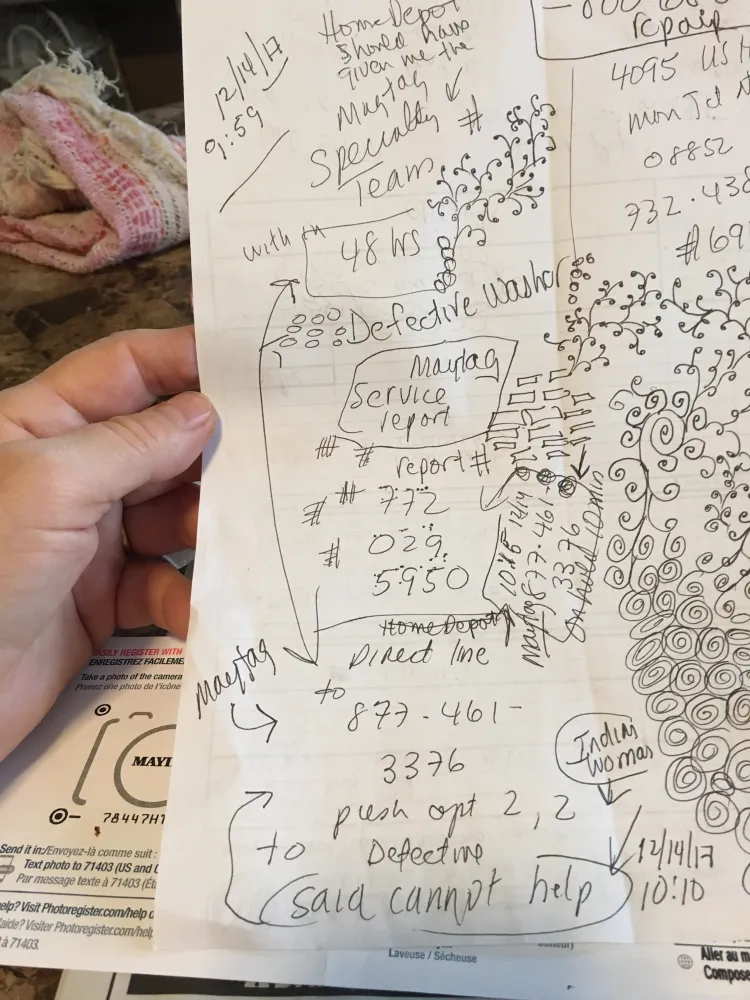 12/14/17
9:59
Home Depot
should have
given me the
Maytag
Specialty #
Team
with in
48 HRS
Defective Washer
Maytag
Service
report
# #
report #
# 772
# 029
5950
Home Depot
Direct line
Maytag
to
877-461-
3376
push opt 2, 2
to Defective
said cannot help
10:15 12/14
Maytag 877-461-
3376
on hold 10 min
Indian
woman
12/14/17
10:10
repair
4095 US H
Mon Jct N
08852
732.438
#691
EASILY REGISTER WITH
ENREGISTREZ FACILEME
Take a photo of the camera
Prenez une photo de l'icône
MAY
78447HT
Send it in:/Envoyez-là comme suit :
Text photo to 71403 (US and C
Par message texte à 71403 (Ét
elp? Visit Photoregister.com/help
aide? Visiter Photoregister.com/help
à 71403.
Laveuse / Sécheuse
Aller au m
Compose